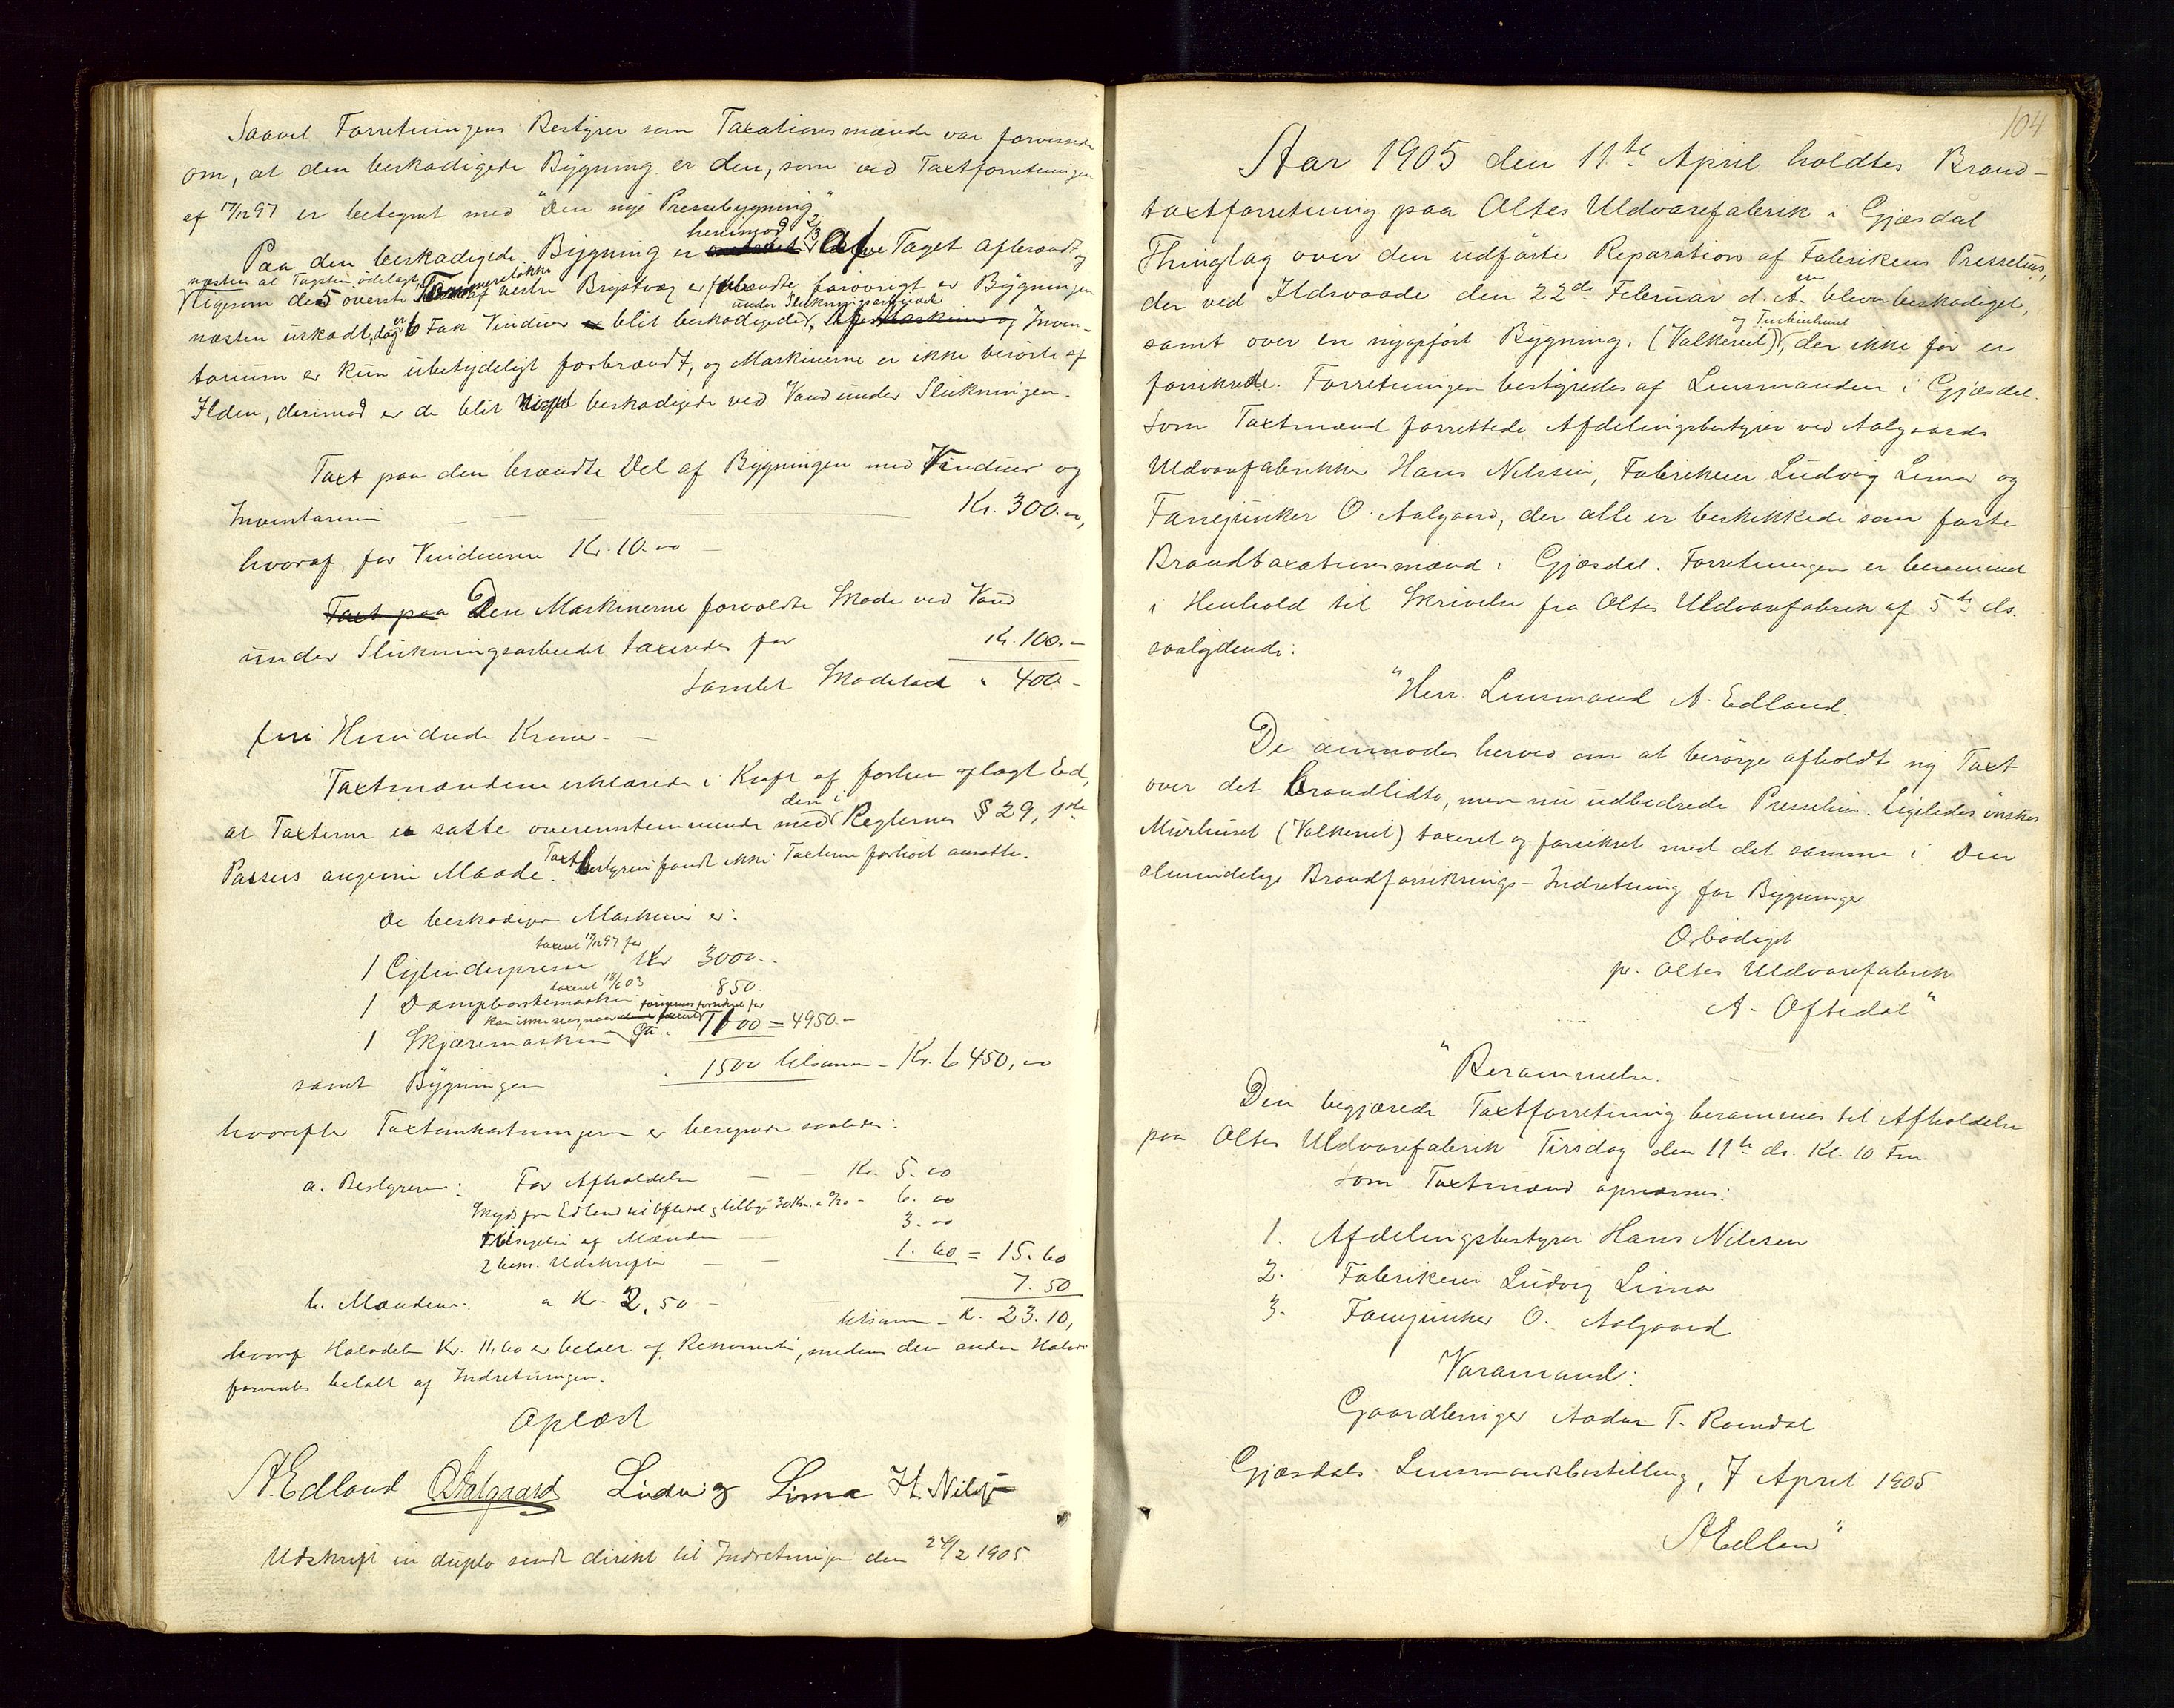 Saavel Forretningens Bestyrer som Taxationsmændene var forvissede
om, at den beskadigede Bygning er den, som ved Taxtforretningen
af 17/12 97 er betegnet med "Den nye Pressebygning"
Paa den beskadigede Bygning er henimod 2/3 af Taget afbrændt, og
næsten al Tagsten ødelagt,
ligesom de 5 øverste af vestre Brystvæg er forbrændte forøvrigt er Bygningen
næsten uskadt, dog er 6 Fag Vinduer blit beskadigede under Slukningsarbeidet, Maskiner og Inven-
tarium er kun ubetydeligt forbrændt, og Maskinerne er ikke berørte af
Ilden, derimod er de blit noget beskadigede ved Vand under Slukningen.
Taxt paa den brændte Del af Bygningen med Vinduer og
Inventarium — — Kr. 300.00,
hvoraf for Vinduerne Kr. 10.00 —
Taxt paa Den Maskinerne forvoldte Skade ved Vand
under Slukningsarbeidet taxeredes for Kr. 100.—
Samlet Skadetaxt " 400.—
fire Hundrede Kroner. —
Taxtmændene erklærede i Kraft af forhen aflagt Ed,
at Taxterne er satte overensstemmende med den i Reglernes § 29, 1ste
Passus angivne Maade. Taxtbestyreren fandt ikke Taxterne forhøit ansatte.
De beskadigede Maskiner er:
taxeret 17/12 97 for
1 Cylinderpresse Kr 3000..
taxeret 18/6 03
1 Dampbørstemaskin 850.
1 Skjæremaskin 1100 = 4950.—
samt Bygningen " 1500 tilsammen — Kr. 6450,00
hvorefter Taxtomkostningerne er beregnede saaledes:
a. Bestyreren: For Afholdelse — Kr. 5.00
Skyds fra Edland til Oftedal og tilbage 30 Km. a 20 — 6.00
Tilsigelse af Mændene — 3.00
2 bekr. Udskrifter — — 1.60 = 15.60
b. Mændene: a Kr. 2,50 — 7.50
tilsammen — K. 23.10,
hvoraf Halvdelen Kr. 11,60 er betalt af Rekvirenten, medens den anden Halvdel
forventes betalt af Indretningen.
Oplæst
A. Edland O Aalgaard Ludvig Lima H. Nilsen
Udskrift in duplo sendt direkte til Indretningen den 24/2 1905
104
Aar 1905 den 11te April holdtes Brand-
taxtforretning paa Oltes Uldvarefabrik i Gjæsdal
Thinglag over den udførte Reparation af Fabrikens Pressehus,
der ved Ildsvaade den 22de Februar d. A. blev beskadiget,
samt over en nyopført Bygning, (Valkeriet) og Turbinhuset, der ikke før er
forsikrede. Forretningen bestyredes af Lensmanden i Gjæsdal.
Som Taxtmænd forrettede Afdelingsbestyrer ved Aalgaards
Uldvarefabrikker Hans Nilssen, Fabrikeier Ludvig Lima og
Fanejunker O. Aalgaard, der alle er beskikkede som faste
Brandtaxationsmænd i Gjæsdal. Forretningen er berammet
i Henhold til Skrivelse fra Oltes Uldvarefabrik af 5te ds.
saalydende:
"Herr Lensmand A. Edland.
De anmodes herved om at besørge afholdt ny Taxt
over det brandlidte, men nu udbedrede Pressehus. Ligeledes ønskes
Murhuset (Valkeriet) taxeret og forsikret med det samme i Den
almindelige Brandforsikrings-Indretning for Bygninger
Ærbødigst
pr. Oltes Uldvarefabrik
A. Oftedal"
"Berammelse.
Den begjærede Taxtforretning berammes til Afholdelse
paa Oltes Uldvarefabrik Tirsdag den 11te ds. Kl. 10 Fm.
Som Taxtmænd opnævnes:
1. Afdelingsbestyrer Hans Nilssen
2. Fabrikeier Ludvig Lima
3. Fanejunker O. Aalgaard
Varamand:
Gaardbruger Aadne T. Ravndal
Gjæsdals Lensmandsbestilling, 7 April 1905
A Edland"